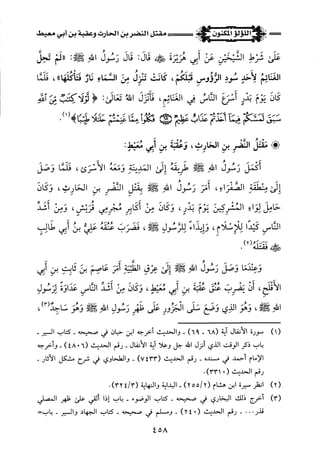 مقتل النضر بن الحارث وعقبة بن أبي معيط
اللؤلؤ المكنون
عَلَى شَرْطِ الشَّيْخَيْنِ عَنْ أَبِي هُرَيْرَةَ ﷺ قَالَ: قَالَ رَسُولُ اللهِ ﷺ: «لَمْ تَحِلَّ
الغَنَائِمُ لِأَحَدٍ سُودِ الرُّؤُوسِ قَبْلَكُمْ، كَانَتْ تَنْزِلُ مِنَ السَّمَاءِ نَارٌ فَتَأْكُلُهَا»، فَلَمَّا
كَانَ يَوْمُ بَدْرٍ أَسْرَعَ النَّاسُ فِي الغَنَائِمِ، فَأَنْزَلَ اللهُ تَعَالَى: ﴿لَّوْلَا كِتَابٌ مِّنَ اللَّهِ
سَبَقَ لَمَسَّكُمْ فِيمَا أَخَذْتُمْ عَذَابٌ عَظِيمٌ ۝ فَكُلُوا مِمَّا غَنِمْتُمْ حَلَالًا طَيِّبًا﴾(١).
◉ مَقْتَلُ النَّضْرِ بنِ الحَارِثِ، وَعُقْبَةَ بنِ أَبِي مُعَيْطٍ:
أَكْمَلَ رَسُولُ اللهِ ﷺ طَرِيقَهُ إِلَى المَدِينَةِ وَمَعَهُ الأَسْرَى، فَلَمَّا وَصَلَ
إِلَى مِنْطَقَةِ الصَّفْرَاءِ، أَمَرَ رَسُولُ اللهِ ﷺ بِقَتْلِ النَّضْرِ بنِ الحَارِثِ، وَكَانَ
حَامِلَ لِوَاءِ المُشْرِكِينَ يَوْمَ بَدْرٍ، وَكَانَ مِنْ أَكَابِرِ مُجْرِمِي قُرَيْشٍ، وَمِنْ أَشَدِّ
النَّاسِ كَيْدًا لِلْإِسْلَامِ، وَإِيذَاءً لِلرَّسُولِ ﷺ، فَضَرَبَ عُنُقَهُ عَلِيُّ بنُ أَبِي طَالِبٍ
فَقَتَلَهُ(٢).
وَعِنْدَمَا وَصَلَ رَسُولُ اللهِ ﷺ إِلَى عِرْقِ الظُّبْيَةِ أَمَرَ عَاصِمَ بنَ ثَابِتِ بنِ أَبِي
الأَقْلَحِ، أَنْ يَضْرِبَ عُنُقَ عُقْبَةَ بنِ أَبِي مُعَيْطٍ، وَكَانَ مِنْ أَشَدِّ النَّاسِ عَدَاوَةً لِرَسُولِ
اللهِ ﷺ، وَهُوَ الذِي وَضَعَ سَلَى الجَزُورِ عَلَى ظَهْرِ رَسُولِ اللهِ ﷺ، وَهُوَ سَاجِدٌ(٣)،
(١) سورة الأنفال آية (٦٨ - ٦٩) - والحديث أخرجه ابن حبان في صحيحه - كتاب السير -
باب ذكر الوقت الذي أنزل الله جل وعلا آية الأنفال - رقم الحديث (٤٨٠٦) - وأخرجه
الإمام أحمد في مسنده - رقم الحديث (٧٤٣٣) - والطحاوي في شرح مشكل الآثار -
رقم الحديث (٣٣١٠).
(٢) انظر سيرة ابن هشام (٢/٢٥٥) - البداية والنهاية (٣/٣٢٤).
(٣) أخرج ذلك البخاري في صحيحه - كتاب الوضوء - باب إذا ألقي على ظهر المصلي
قذر... - رقم الحديث (٢٤٠) - ومسلم في صحيحه - كتاب الجهاد والسير - باب=
٤٥٨